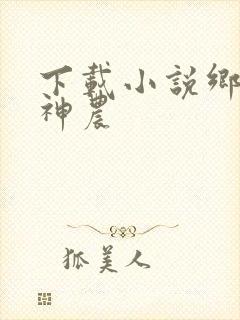 下載小説鄉
神農
狐美人